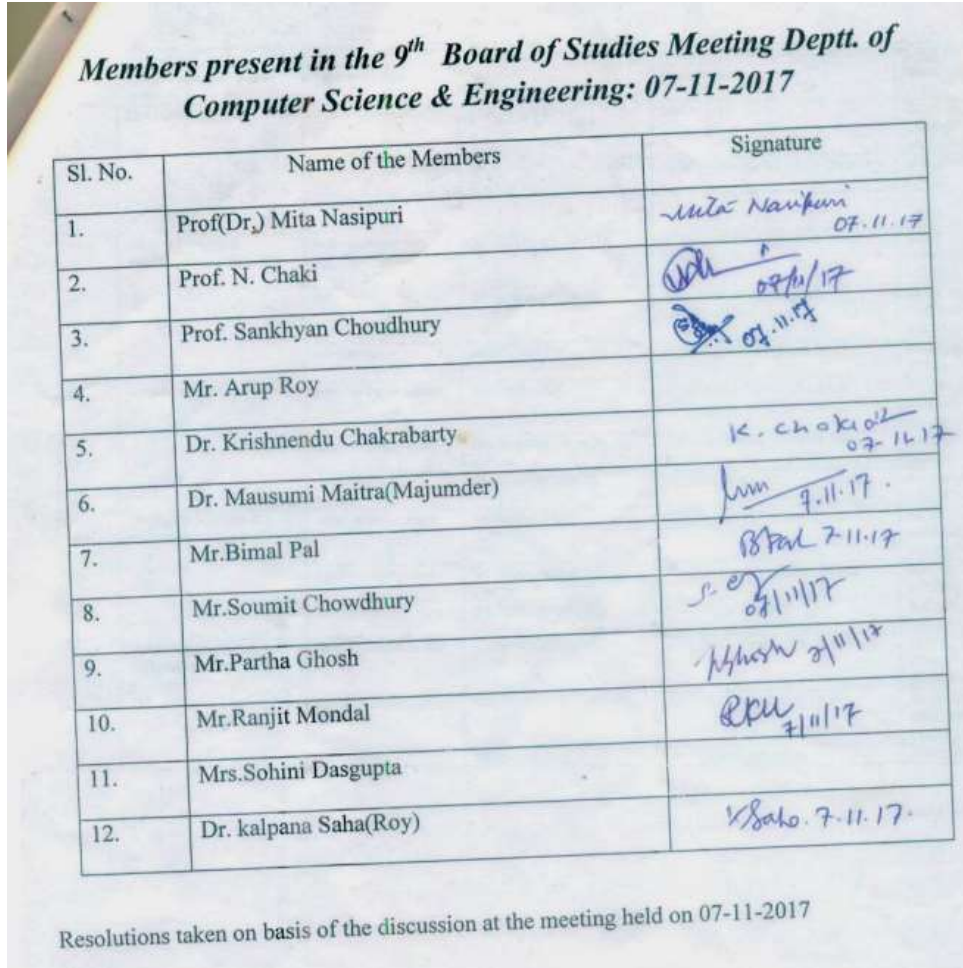 Members present in the 9th Board of Studies Meeting Deptt. of
Computer Science & Engineering: 07-11-2017
Sl. No. Name of the Members Signature
1. Prof(Dr,) Mita Nasipuri Mita Nasipuri 07.11.17
2. Prof. N. Chaki 07/11/17
3. Prof. Sankhyan Choudhury 07.11.17
4. Mr. Arup Roy
5. Dr. Krishnendu Chakrabarty K. 07-11-17
6. Dr. Mausumi Maitra(Majumder) 7.11.17.
7. Mr.Bimal Pal BPal 7-11-17
8. Mr.Soumit Chowdhury 07/11/17
9. Mr.Partha Ghosh PGhosh 7/11/17
10. Mr.Ranjit Mondal 7/11/17
11. Mrs.Sohini Dasgupta
12. Dr. kalpana Saha(Roy) KSaha. 7.11.17.
Resolutions taken on basis of the discussion at the meeting held on 07-11-2017